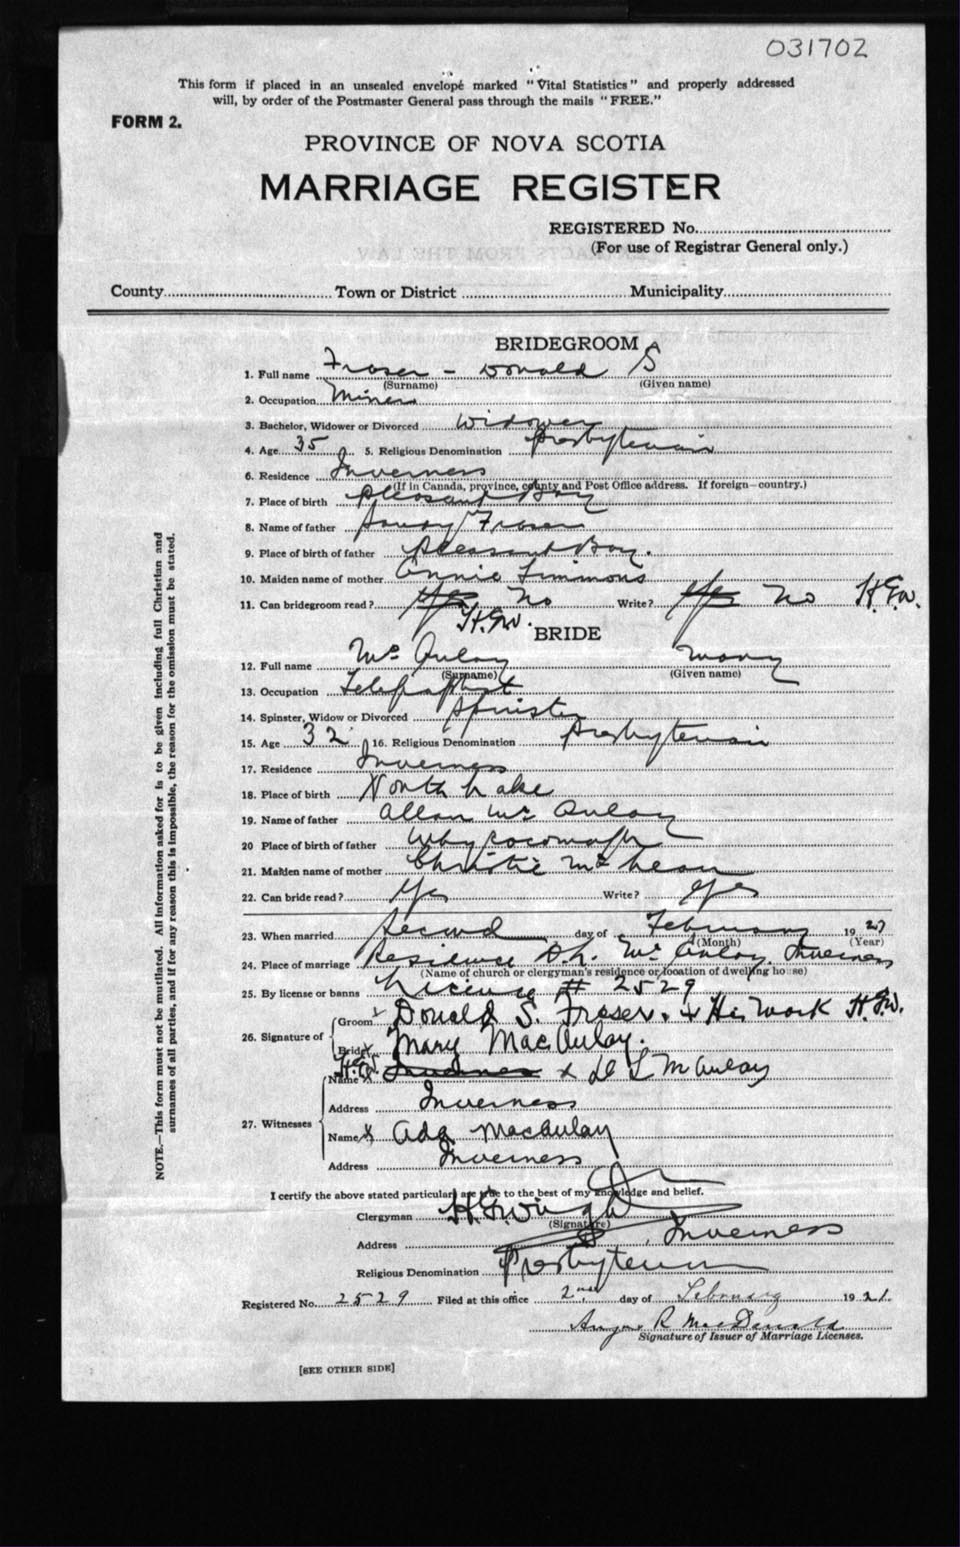 031702
This form if placed in an unsealed envelope marked "Vital Statistics" and properly addressed
will, by order of the Postmaster General pass through the mails "FREE."
FORM 2.
PROVINCE OF NOVA SCOTIA
MARRIAGE REGISTER
REGISTERED No.
(For use of Registrar General only.)
County Town or District Municipality
BRIDEGROOM
1. Full name Fraser - Donald S
(Surname) (Given name)
2. Occupation Miner
3. Bachelor, Widower or Divorced Widower
4. Age 35 5. Religious Denomination Presbyterian
6. Residence Inverness
(If in Canada, province, county and Post Office address. If foreign-country.)
7. Place of birth Pleasant Bay
8. Name of father Fraser
9. Place of birth of father Pleasant Bay.
10. Maiden name of mother Annie Timmons
11. Can bridegroom read? Yes No Write? Yes No H.G.W.
H.G.W.
BRIDE
12. Full name Mc Aulay Mary
(Surname) (Given name)
13. Occupation
14. Spinster, Widow or Divorced Spinster
15. Age 32 16. Religious Denomination Presbyterian
17. Residence Inverness
18. Place of birth North Lake
19. Name of father Allan Mc Aulay
20 Place of birth of father Whycocomagh
21. Maiden name of mother Christie McLean
22. Can bride read? Yes Write? Yes
23. When married Second day of February 1921
(Month) (Year)
24. Place of marriage Residence D.L. Mc Aulay Inverness
(Name of church or clergyman's residence or location of dwelling house)
25. By license or banns License # 2529
26. Signature of Groom Donald S. Fraser. x His Mark H.G.W.
Bride x Mary MacAulay.
27. Witnesses Name x H.G.W. Inverness x D L McAulay
Address Inverness
Name x Ada MacAulay
Address Inverness
I certify the above stated particulars are true to the best of my knowledge and belief.
Clergyman H.G. Wright
(Signature)
Address Inverness
Religious Denomination Presbyterian
Registered No. 2529 Filed at this office 2nd day of February 1921.
Angus R MacDonald
Signature of Issuer of Marriage Licenses.
[SEE OTHER SIDE]
NOTE.—This form must not be mutilated. All information asked for is to be given including full Christian and
surnames of all parties, and if for any reason this is impossible, the reason for the omission must be stated.